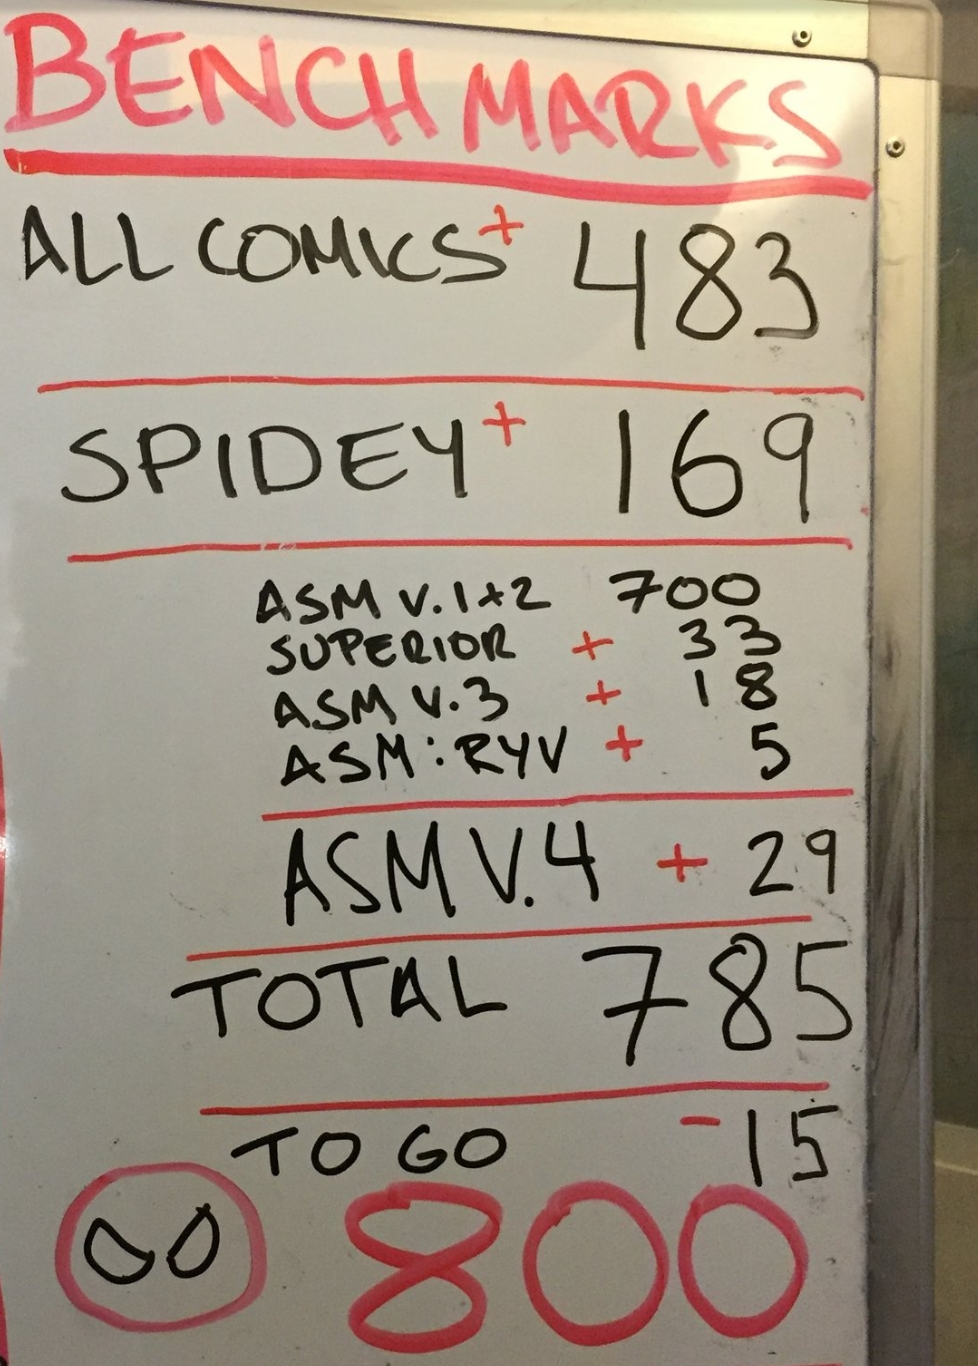 BENCHMARKS
ALL COMICS+ 483
SPIDEY+ 169
ASM V.1+2 700
SUPERIOR + 33
ASM V.3 + 18
ASM: RYV + 5
ASM V.4 + 29
TOTAL 785
TO GO -15
800